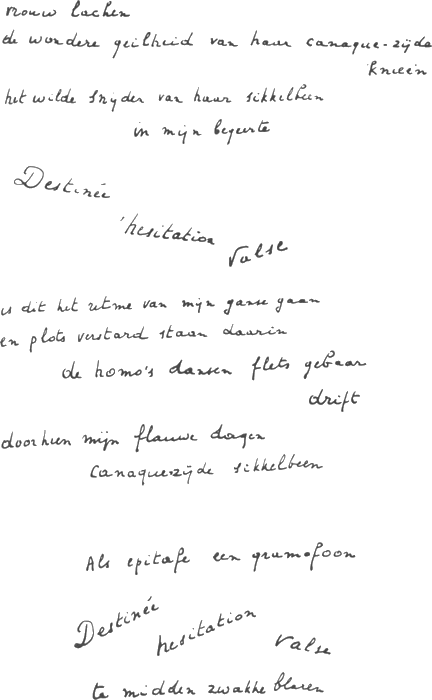 vrouw lachen
de wondere geilheid van haar canaque-zijde
knieën
het wilde snijden van haar sikkelbeen
in mijn begeerte
Destinée
hesitation
valse
is dit het ritme van mijn ganse gaan
en plots verstard staan daarin
de homo's dansen flets gebaar
drift
doorheen mijn flauwe dagen
canaquezijde sikkelbeen
Als epitafe een gramofoon
Destinée
hesitation
valse
te midden zwakke blaren